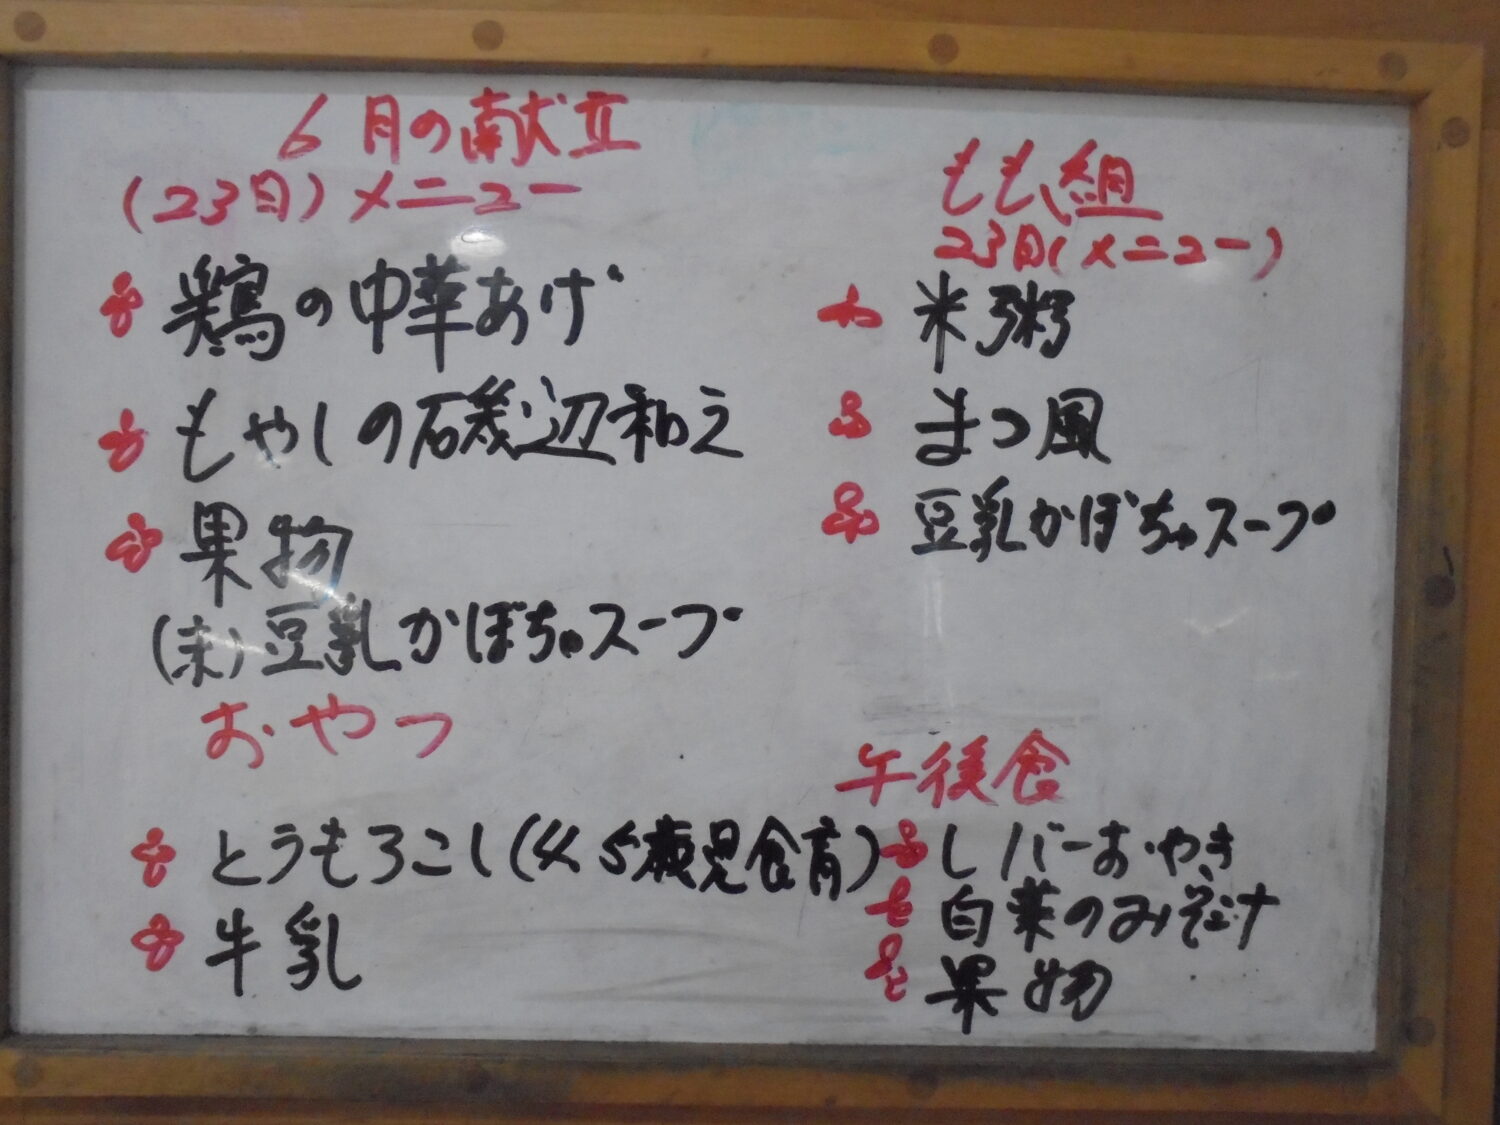 6月の献立
(23日)メニュー
鶏の中華あげ
もやしの磯辺和え
果物
(未)豆乳かぼちゃスープ
おやつ
とうもろこし(4,5歳児食育)
牛乳
もも組
23日(メニュー)
米粥
まつ風
豆乳かぼちゃスープ
午後食
レバーおやき
白菜のみそに
果物